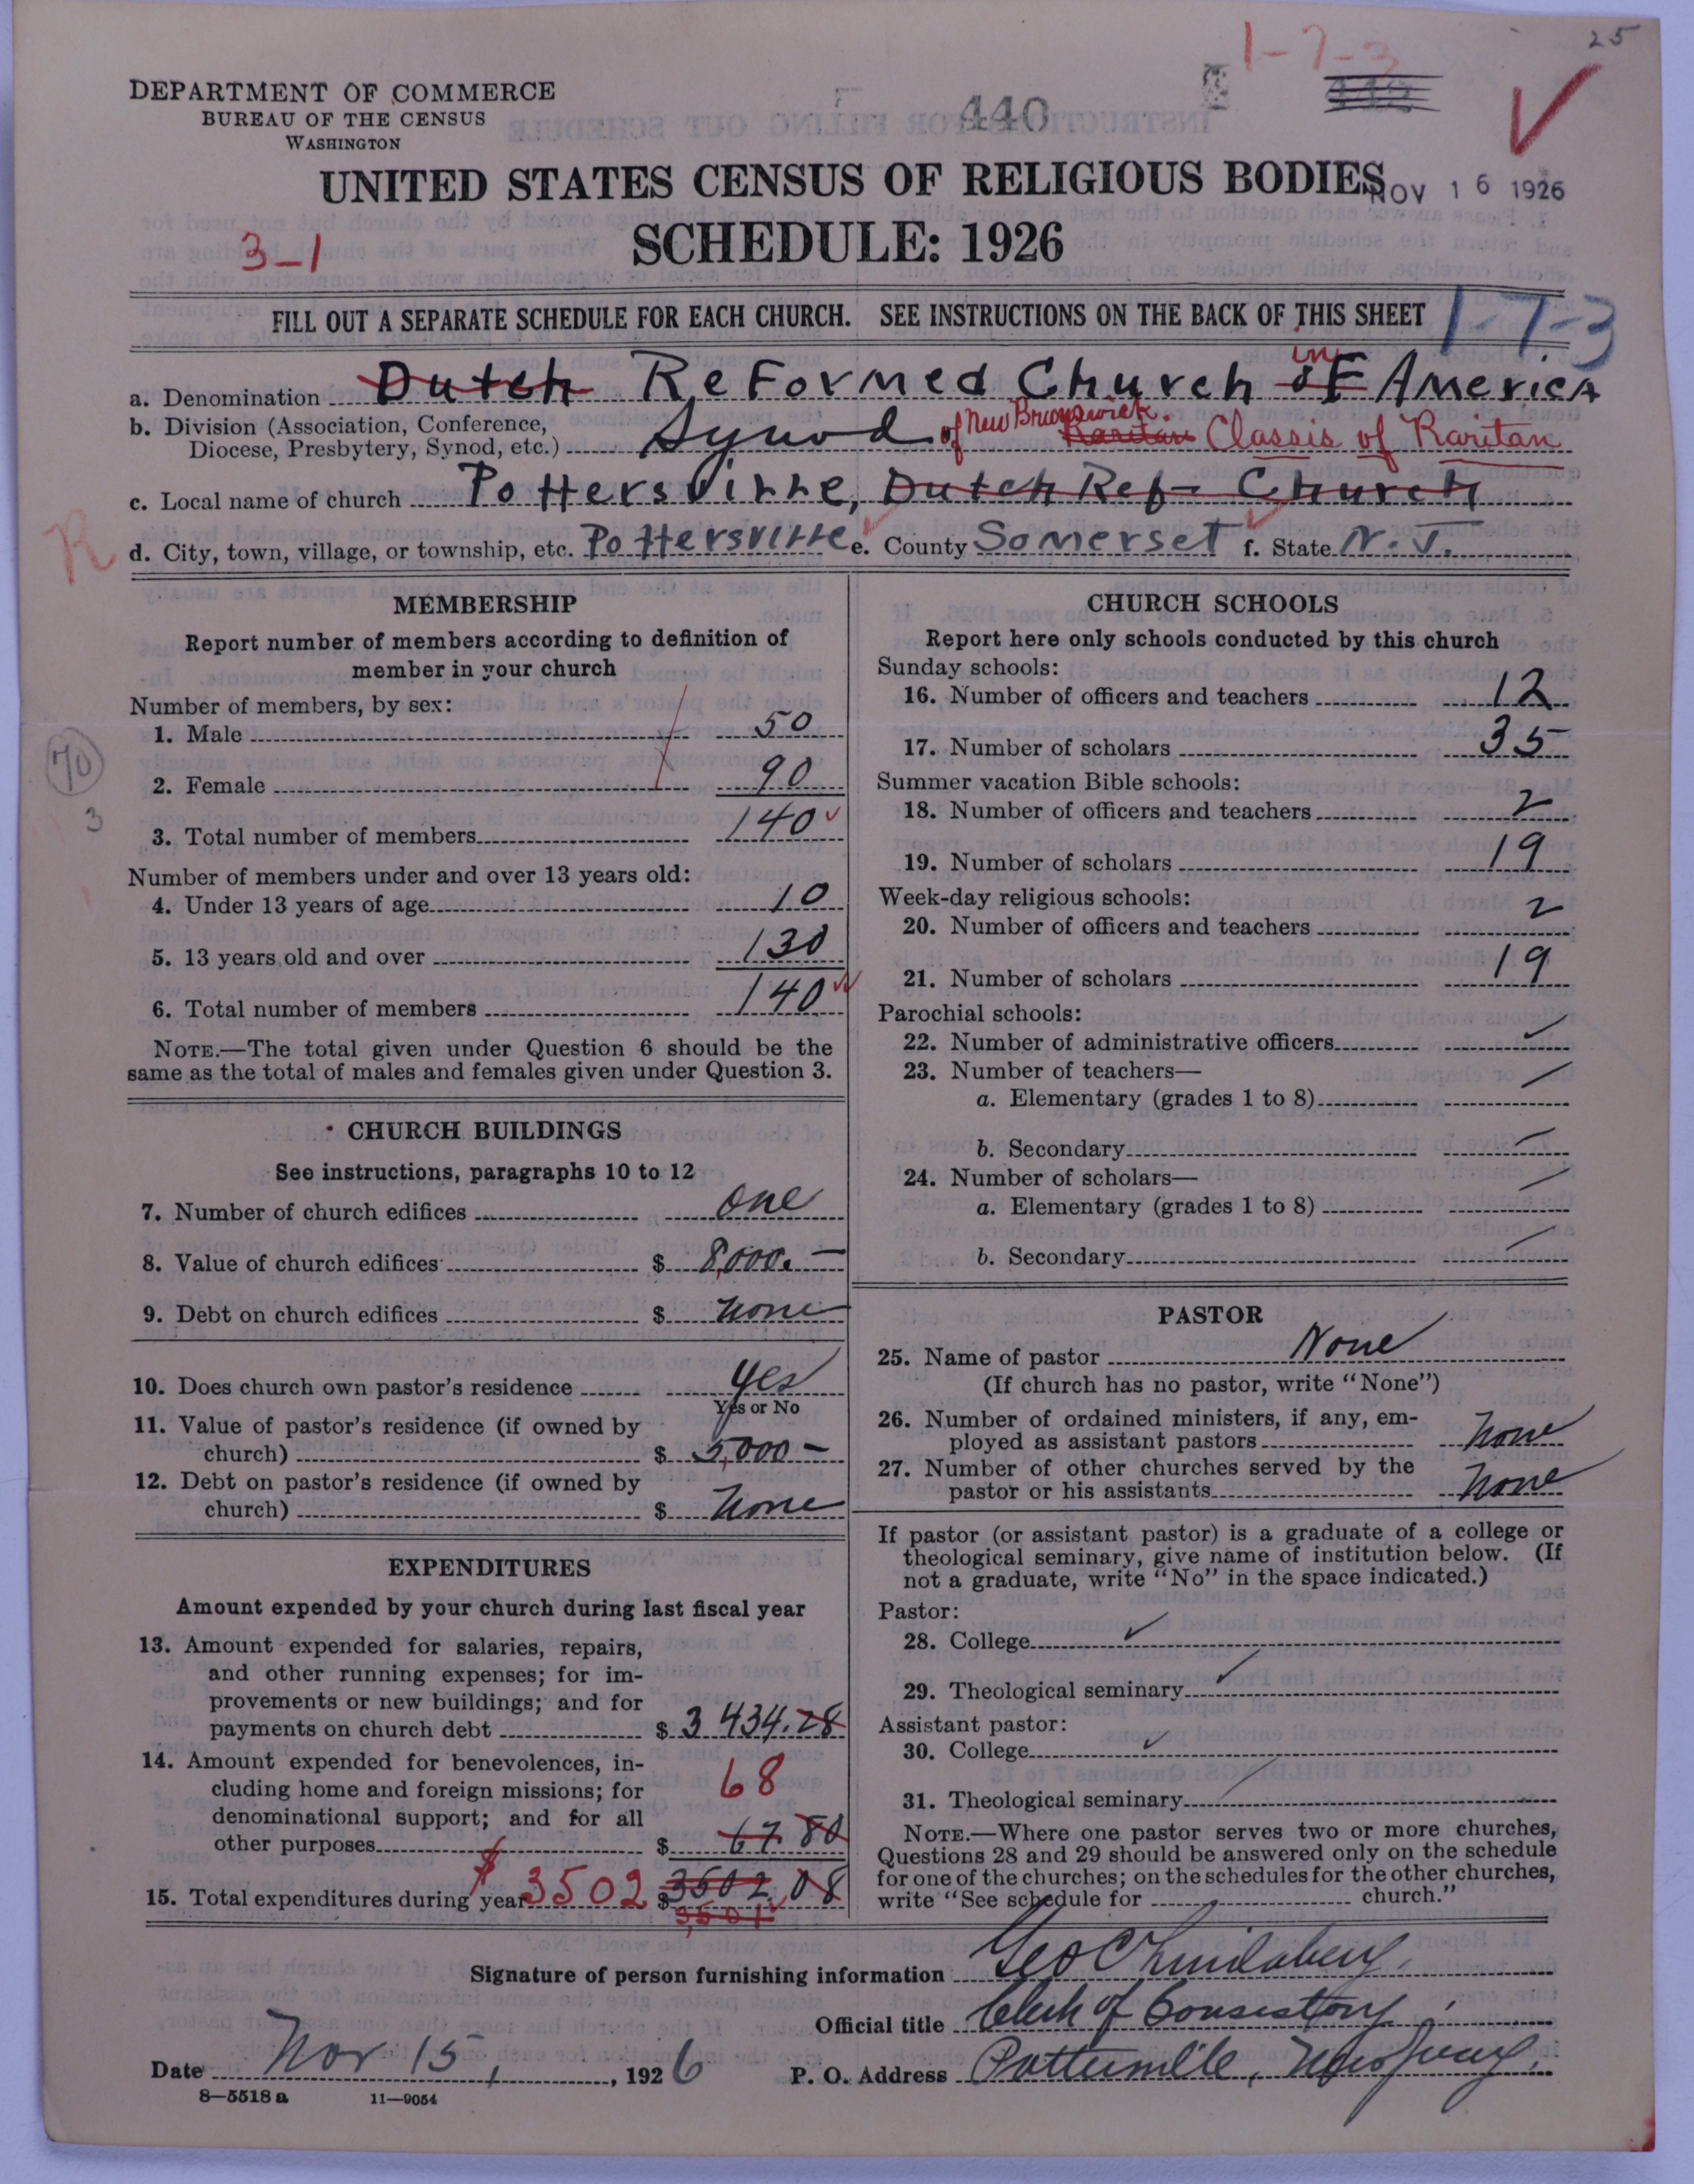 25
1-7-3
DEPARTMENT OF COMMERCE
BUREAU OF THE CENSUS
WASHINGTON
440
UNITED STATES CENSUS OF RELIGIOUS BODIES
NOV 16 1926
3-1
SCHEDULE: 1926
FILL OUT A SEPARATE SCHEDULE FOR EACH CHURCH. SEE INSTRUCTIONS ON THE BACK OF THIS SHEET
1-7-3
a. Denomination Dutch Reformed Church of in America
b. Division (Association, Conference, Diocese, Presbytery, Synod, etc.) Synod of New Brunswick. Raritan Classis of Raritan
c. Local name of church Pottersville, Dutch Ref- Church
R
d. City, town, village, or township, etc. Pottersville e. County Somerset f. State N.J.
MEMBERSHIP
Report number of members according to definition of
member in your church
Number of members, by sex:
1. Male 50
70
2. Female 90
3
3. Total number of members 140
Number of members under and over 13 years old:
4. Under 13 years of age 10
5. 13 years old and over 130
6. Total number of members 140
NOTE.—The total given under Question 6 should be the
same as the total of males and females given under Question 3.
CHURCH BUILDINGS
See instructions, paragraphs 10 to 12
7. Number of church edifices one
8. Value of church edifices $ 8,000.—
9. Debt on church edifices $ none
10. Does church own pastor's residence yes
Yes or No
11. Value of pastor's residence (if owned by
church) $ 5,000 -
12. Debt on pastor's residence (if owned by
church) $ none
EXPENDITURES
Amount expended by your church during last fiscal year
13. Amount expended for salaries, repairs,
and other running expenses; for im-
provements or new buildings; and for
payments on church debt $ 3 434.28
14. Amount expended for benevolences, in-
cluding home and foreign missions; for 68
denominational support; and for all
other purposes $ 67.80
15. Total expenditures during year $ 3502 $ 3502.08
3,501
CHURCH SCHOOLS
Report here only schools conducted by this church
Sunday schools:
16. Number of officers and teachers 12
17. Number of scholars 35
Summer vacation Bible schools:
18. Number of officers and teachers 2
19. Number of scholars 19
Week-day religious schools:
20. Number of officers and teachers 2
21. Number of scholars 19
Parochial schools:
22. Number of administrative officers
23. Number of teachers—
a. Elementary (grades 1 to 8)
b. Secondary
24. Number of scholars—
a. Elementary (grades 1 to 8)
b. Secondary
PASTOR
25. Name of pastor None
(If church has no pastor, write "None")
26. Number of ordained ministers, if any, em-
ployed as assistant pastors none
27. Number of other churches served by the
pastor or his assistants none
If pastor (or assistant pastor) is a graduate of a college or
theological seminary, give name of institution below. (If
not a graduate, write "No" in the space indicated.)
Pastor:
28. College
29. Theological seminary
Assistant pastor:
30. College
31. Theological seminary
NOTE.—Where one pastor serves two or more churches,
Questions 28 and 29 should be answered only on the schedule
for one of the churches; on the schedules for the other churches,
write "See schedule for church."
Signature of person furnishing information Geo C
Official title Clerk of Consistory
Date Nov 15, 1926 P. O. Address Pottersville, New Jersey.
8—5518 a 11—9054